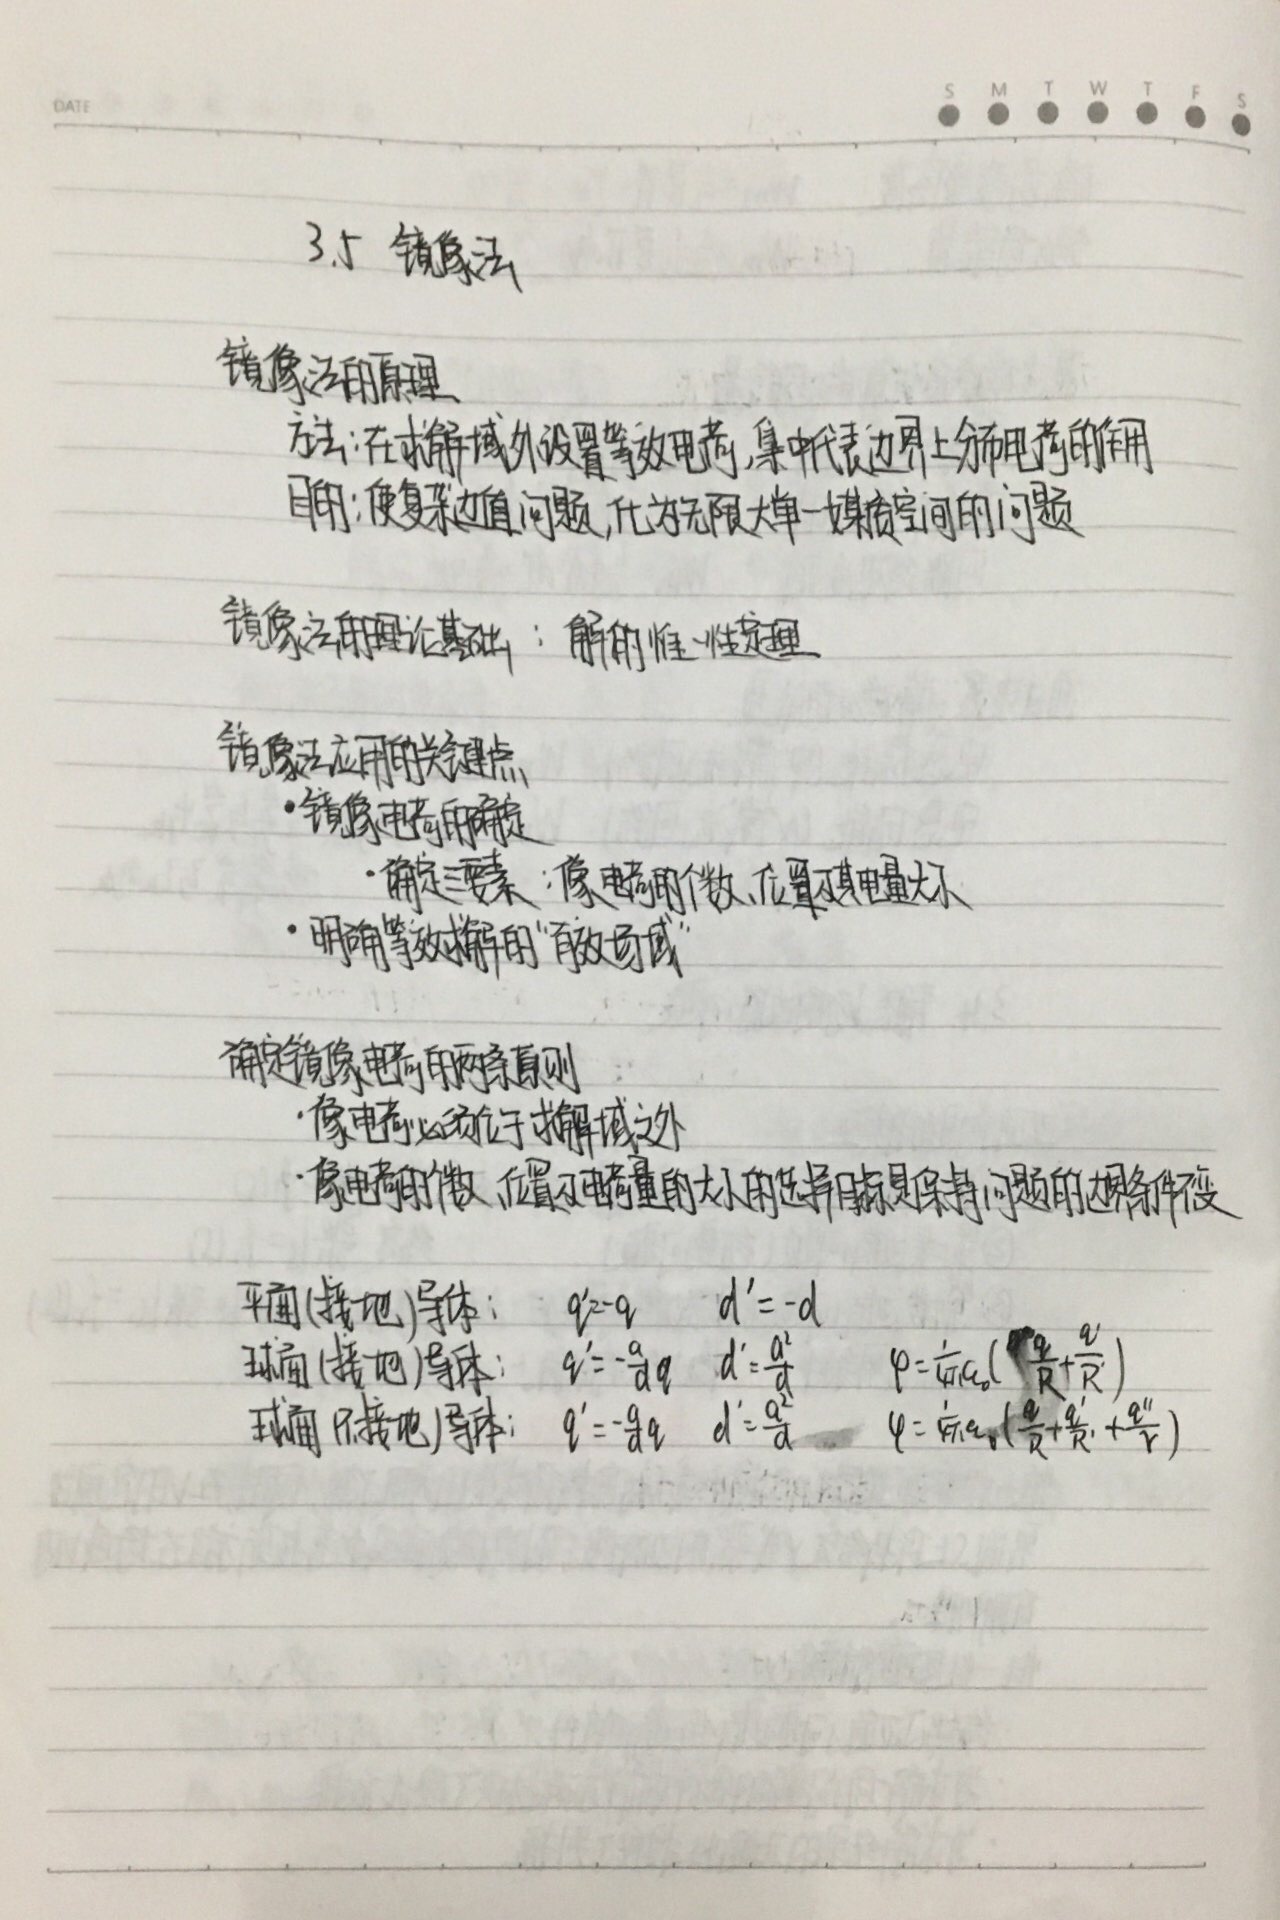 DATE
S M T W T F S
3.5 镜像法
镜像法的原理
方法:在求解域外设置等效电荷,集中代表边界上分布电荷的作用
目的:使复杂边值问题,化为无限大单一媒质空间的问题
镜像法的理论基础:解的惟一性定理
镜像法应用的关键点
·镜像电荷的确定
·确定三要素:像电荷的个数、位置及其电量大小
·明确等效求解的“有效场域”
确定镜像电荷的两条原则
·像电荷必须位于求解域之外
·像电荷的个数、位置及电荷量的大小的选择目标是保持问题的边界条件不变
平面(接地)导体: q'=-q d'=-d
球面(接地)导体: q'=-a/d q d'=a²/d φ=1/4πε₀(q/R+q'/R')
球面(不接地)导体: q'=-a/d q d'=a²/d φ=1/4πε₀(q/R+q'/R'+q''/r)